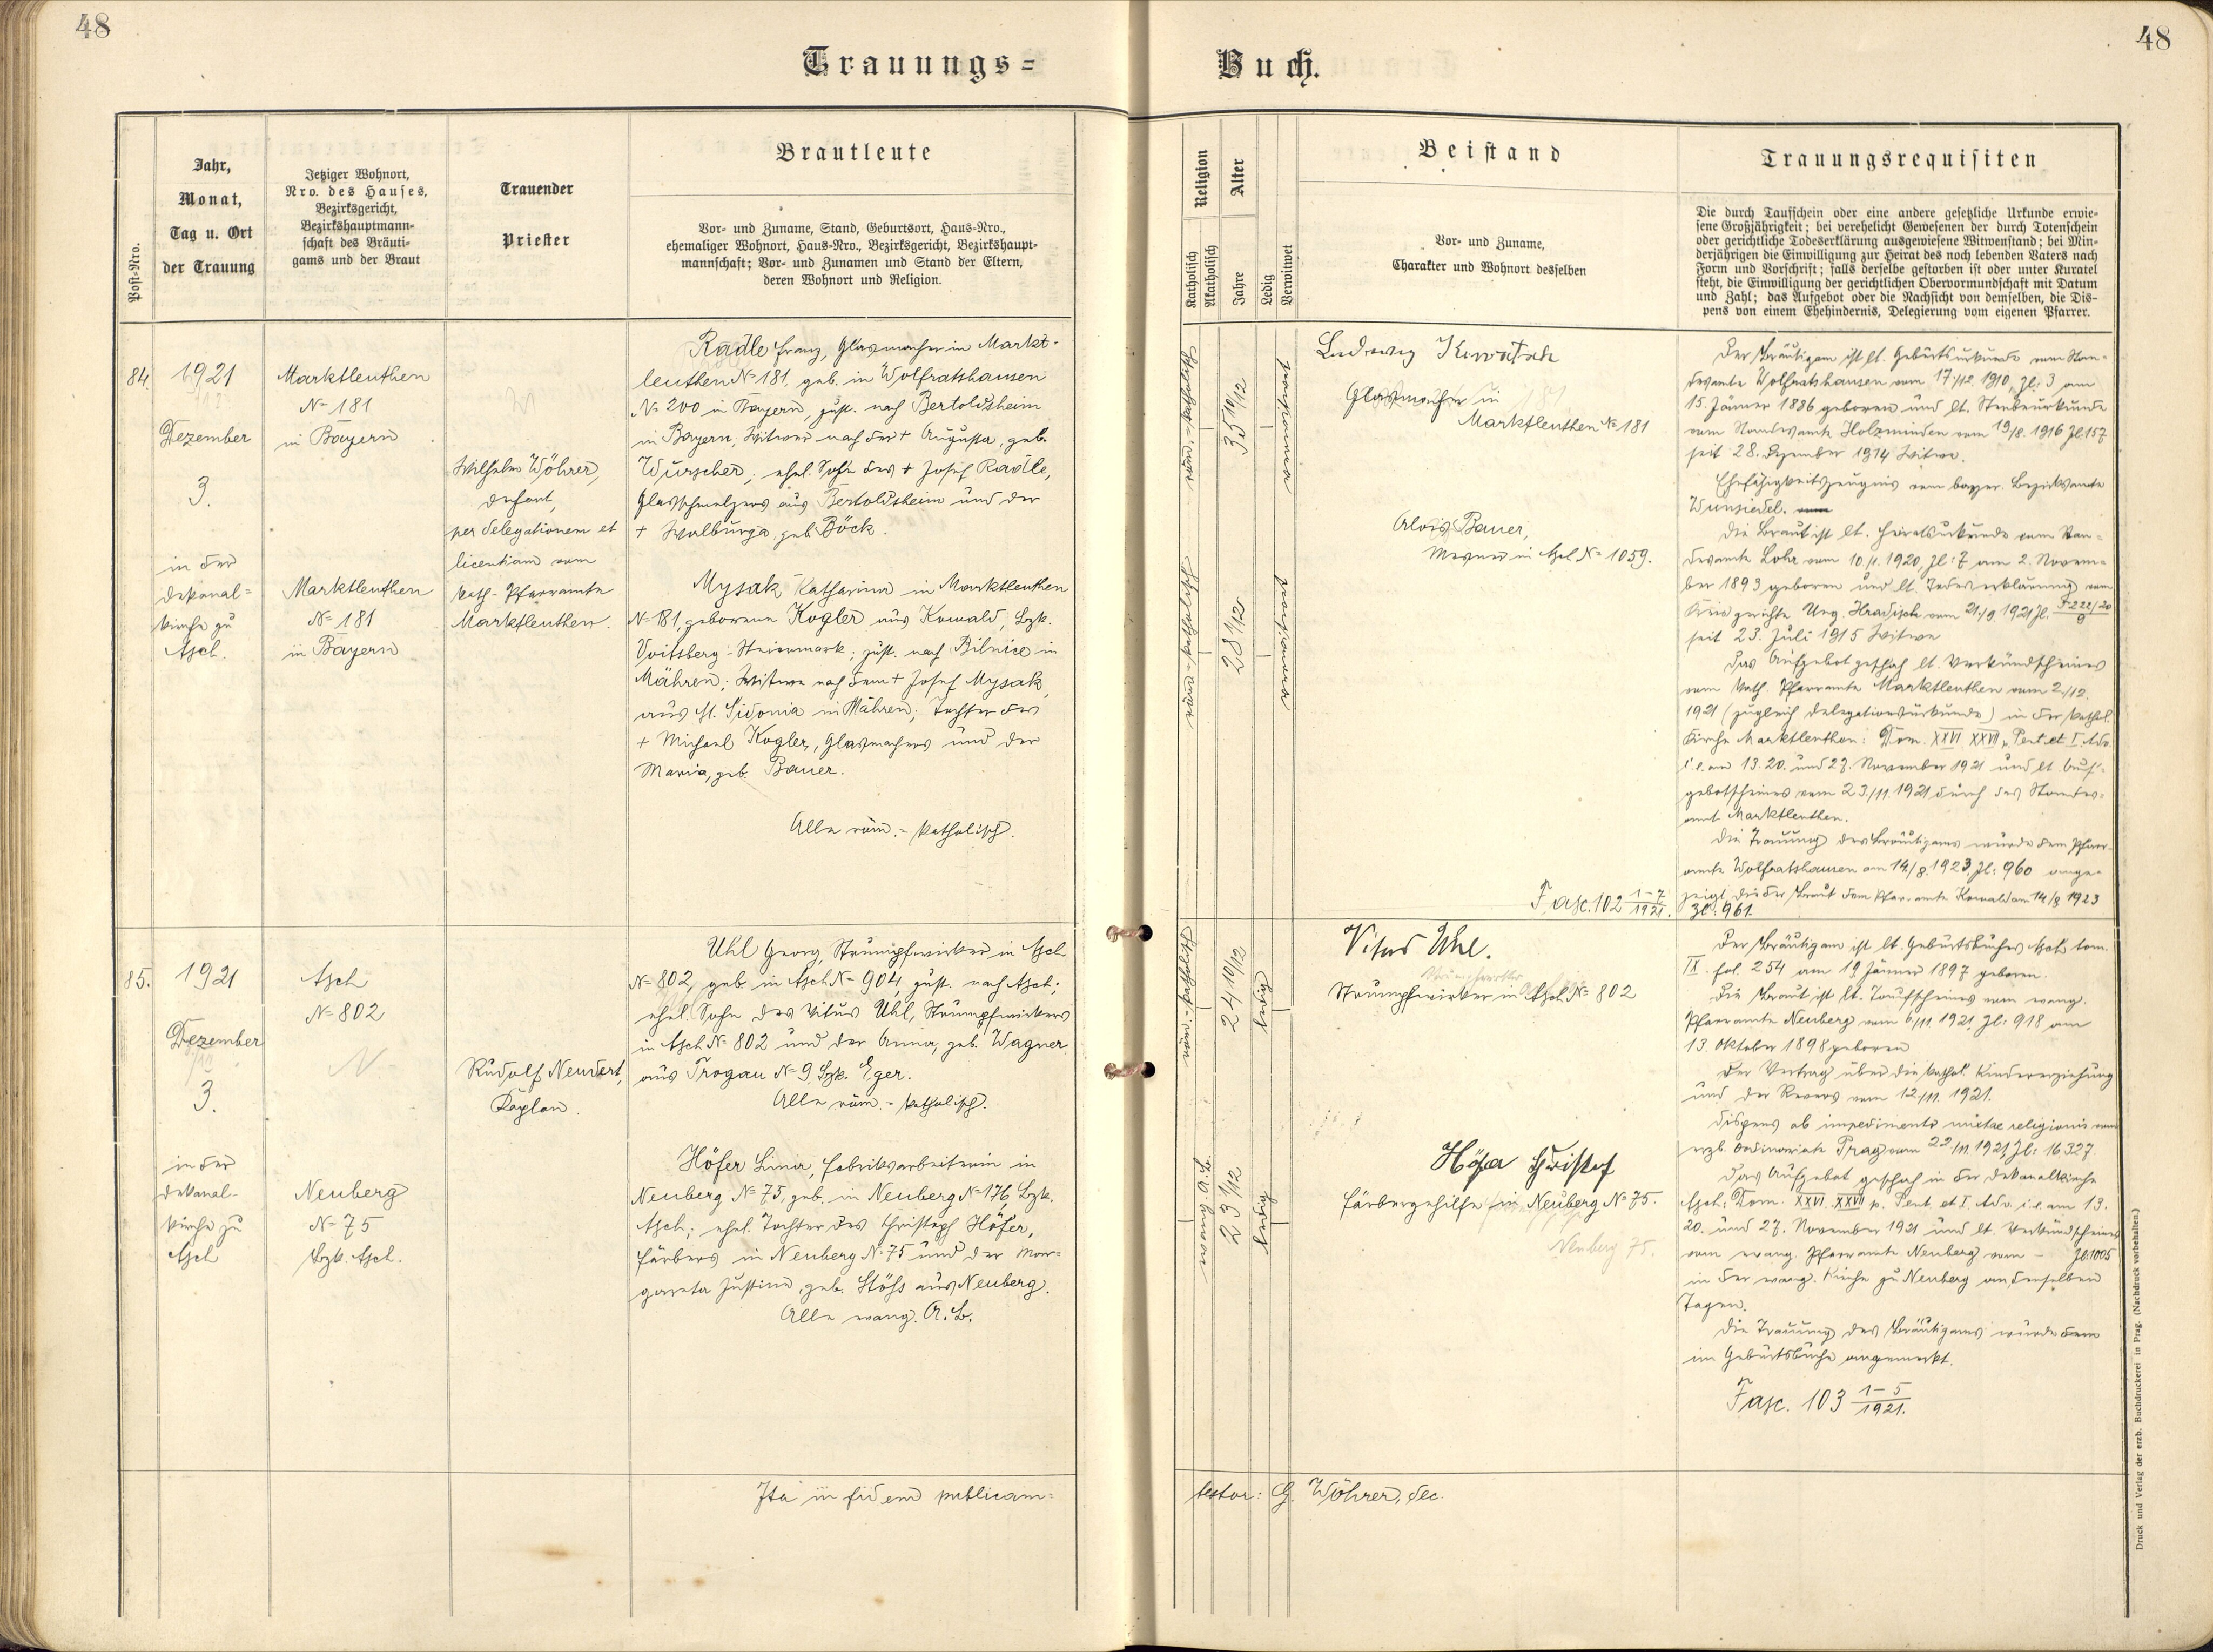 48
48
Trauungs=
Buch.
Post-Nro.
Jahr,
Monat,
Tag u. Ort
der Trauung
Jetziger Wohnort,
Nro. des Hauses,
Bezirksgericht,
Bezirkshauptmann-
schaft des Bräuti-
gams und der Braut
Trauender
Priester
Brautleute
Vor- und Zuname, Stand, Geburtsort, Haus-Nro.,
ehemaliger Wohnort, Haus-Nro., Bezirksgericht, Bezirkshaupt-
mannschaft; Vor- und Zunamen und Stand der Eltern,
deren Wohnort und Religion.
Religion
Katholisch
Akatholisch
Alter
Jahre
Ledig
Verwitwet
Beistand
Vor- und Zuname,
Charakter und Wohnort desselben
Trauungsrequisiten
Die durch Taufschein oder eine andere gesetzliche Urkunde erwie-
sene Großjährigkeit; bei verehelicht Gewesenen der durch Totenschein
oder gerichtliche Todeserklärung ausgewiesene Witwenstand; bei Min-
derjährigen die Einwilligung zur Heirat des noch lebenden Vaters nach
Form und Vorschrift; falls derselbe gestorben ist oder unter Kuratel
steht, die Einwilligung der gerichtlichen Obervormundschaft mit Datum
und Zahl; das Aufgebot oder die Nachsicht von demselben, die Dis-
pens von einem Ehehindernis, Delegierung vom eigenen Pfarrer.
84.
1921
Dezember
3.
in der
Dekanal=
kirche zu
Asch.
Marktleuthen
N= 181
in Bayern
Marktleuthen
N= 181
in Bayern
Wilhelm Wöhrer,
Dechant,
per delegationem et
licentiam vom
kath. Pfarramte
Marktleuthen.
Radle Franz, Glasmacher in Markt-
leuthen N= 181, geb. in Wolfratshausen
N= 200 in Bayern, zust. nach Bertoldsheim
in Bayern, Witwer nach der + Augusta, geb.
Wurscher; ehel. Sohn des + Josef Radle,
Glasschmelzers aus Bertoldsheim und der
+ Walburga geb. Böck.
Mysak Katharina in Marktleuthen
N= 181, geborene Kogler aus Kowald, Bzk.
Voitsberg - Steiermark; zust. nach Bilnice in
Mähren; Witwe nach dem + Josef Mysak,
aus St. Sidonia in Mähren; Tochter des
+ Michael Kogler, Glasmachers und der
Maria, geb. Bauer.
Alle röm.-katholisch.
35 10/12
28 1/12
Ludwig
Glasmacher in
Marktleuthen N= 181
Alois Bauer,
Mesner in Asch N= 1059.
Fasc. 102 1-7/1921.
Der Bräutigam ist lt. Geburtsurkunde vom Stan-
desamte Wolfratshausen vom 17./12. 1910, Zl: 3 am
15. Jänner 1886 geboren und lt. Sterbeurkunde
vom Standesamte Holzminden vom 19/8. 1916 Zl. 157
seit 28. Dezember 1914 Witwer.
Ehefähigkeitszeugnis vom bayer. Bezirksamte
Wunsiedel.
Die Braut ist lt. Heiratsurkunde vom Stan=
desamte Lohr vom 10./1. 1920, Zl: 7 am 2. Novem=
ber 1893 geboren und lt. Todeserklärung vom
Kreisgerichte Ung. Hradisch vom 21./9. 1921 Zl.
seit 23. Juli 1915 Witwe
Das Aufgebot geschah lt. Verkündscheines
vom kath. Pfarramte Marktleuthen vom 2./12.
1921 (zugleich Delegationsurkunde) in der kathol.
Kirche Marktleuthen: Dom. XXVI XXVII p. Pent. et I. Adv.
i. e. am 13. 20. und 27. November 1921 und lt. Auf=
gebotscheines vom 23./11. 1921 durch das Standes=
amt Marktleuthen.
Die Trauung des Bräutigams wurde dem Pfarr-
amte Wolfratshausen am 14/8. 1923, Zl: 960 ange=
zeigt, die der Braut dem Pfarramte Kowald am 14/8 1923
Zl: 961.
85.
1921
Dezember
3.
in der
Dekanal-
kirche zu
Asch
Asch
N= 802
Neuberg
N= 75
Bzk. Asch.
Rudolf Neudert,
Kaplan.
Uhl Georg, Strumpfwirker in Asch
N= 802, geb. in Asch N= 904, zust. nach Asch;
ehel. Sohn des Vitus Uhl, Strumpfwirkers
in Asch N= 802 und der Anna, geb. Wagner
aus Trogau N= 9 Bzk. Eger.
Alle röm.-katholisch.
Höfer Lina, Fabriksarbeiterin in
Neuberg N= 75, geb. in Neuberg N= 176 Bzk.
Asch; ehel. Tochter des Christoph Höfer,
Färbers in Neuberg N= 75 und der Mar=
gareta Justine, geb. Stöss aus Neuberg.
Alle evang. A. B.
24 10/12
ledig
23 1/12
ledig
Vitus Uhl.
Strumpfwirker in Asch N= 802
Höfer Christof
Färbergehilfe in Neuberg N= 75.
Neuberg 75.
Der Bräutigam ist lt. Geburtsbuches Asch tom.
IX. fol. 254 am 19. Jänner 1897 geboren.
Die Braut ist lt. Taufscheines vom evang.
Pfarramte Neuberg vom 6/11. 1921, Zl: 918 am
13. Oktober 1898 geboren
Der Vertrag über die kathol. Kindererziehung
und der Revers vom 12./11. 1921.
Dispens ab impedimento mixtae religionis vom
erzb. Ordinariate Prag vom 22/11. 1921, Zl: 16.327.
Das Aufgebot geschah in der Dekanalkirche
Asch: Dom. XXVI. XXVII p. Pent. et I. Adv. i. e. am 13.
20. und 27. November 1921 und lt. Verkündscheines
vom evang. Pfarramte Neuberg vom - Zl: 1005
in der evang. Kirche zu Neuberg an denselben
Tagen.
Die Trauung des Bräutigams wurde dem
im Geburtsbuche angemerkt.
Fasc. 103 1-5/1921.
Ita in fidem publicam=
testor: G. Wöhrer, dec.
Druck und Verlag der erzb. Buchdruckerei in Prag. (Nachdruck vorbehalten.)